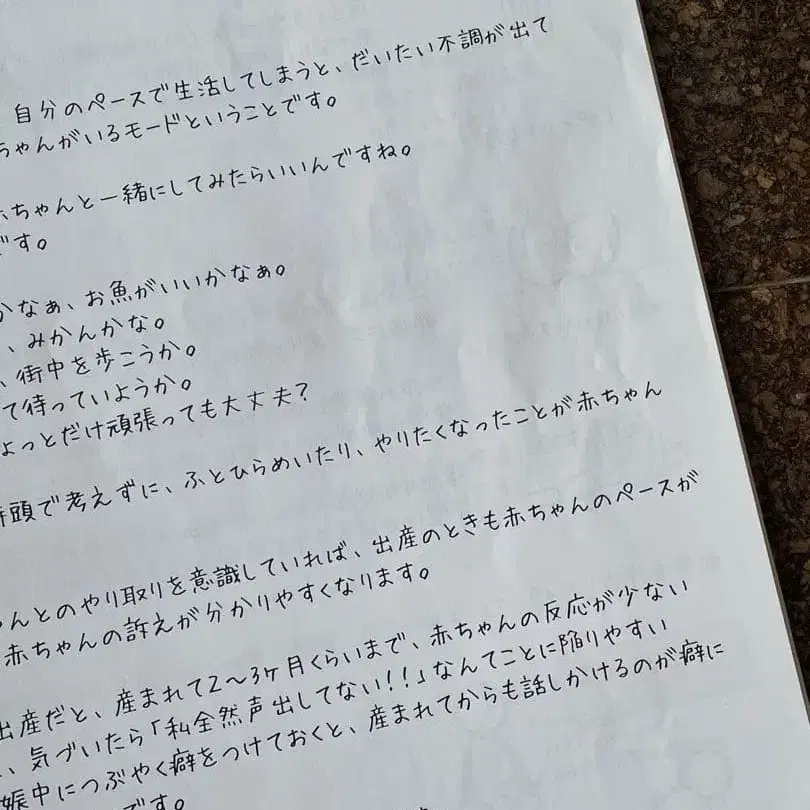 自分のペースで生活してしまうと、だいたい不調が出て
ちゃんがいるモードということです。
赤ちゃんと一緒にしてみたらいいんですね。
です。
かなぁ、お魚がいいかなぁ。
、みかんかな。
、街中を歩こうか。
て待っていようか。
ょっとだけ頑張っても大丈夫？
頭で考えずに、ふとひらめいたり、やりたくなったことが赤ちゃん
ゃんとのやり取りを意識していれば、出産のときも赤ちゃんのペースが
赤ちゃんの訴えが分かりやすくなります。
出産だと、産まれて2〜3ヶ月くらいまで、赤ちゃんの反応が少ない
、気づいたら「私全然声出してない!!」なんてことに陥りやすい
娠中につぶやく癖をつけておくと、産まれてからも話しかけるのが癖に
です。